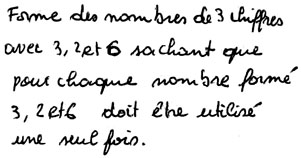 Forme des nombres de 3 chiffres
avec 3, 2 et 6 sachant que
pour chaque nombre formé
3, 2 et 6 doit être utilisé
une seul fois.